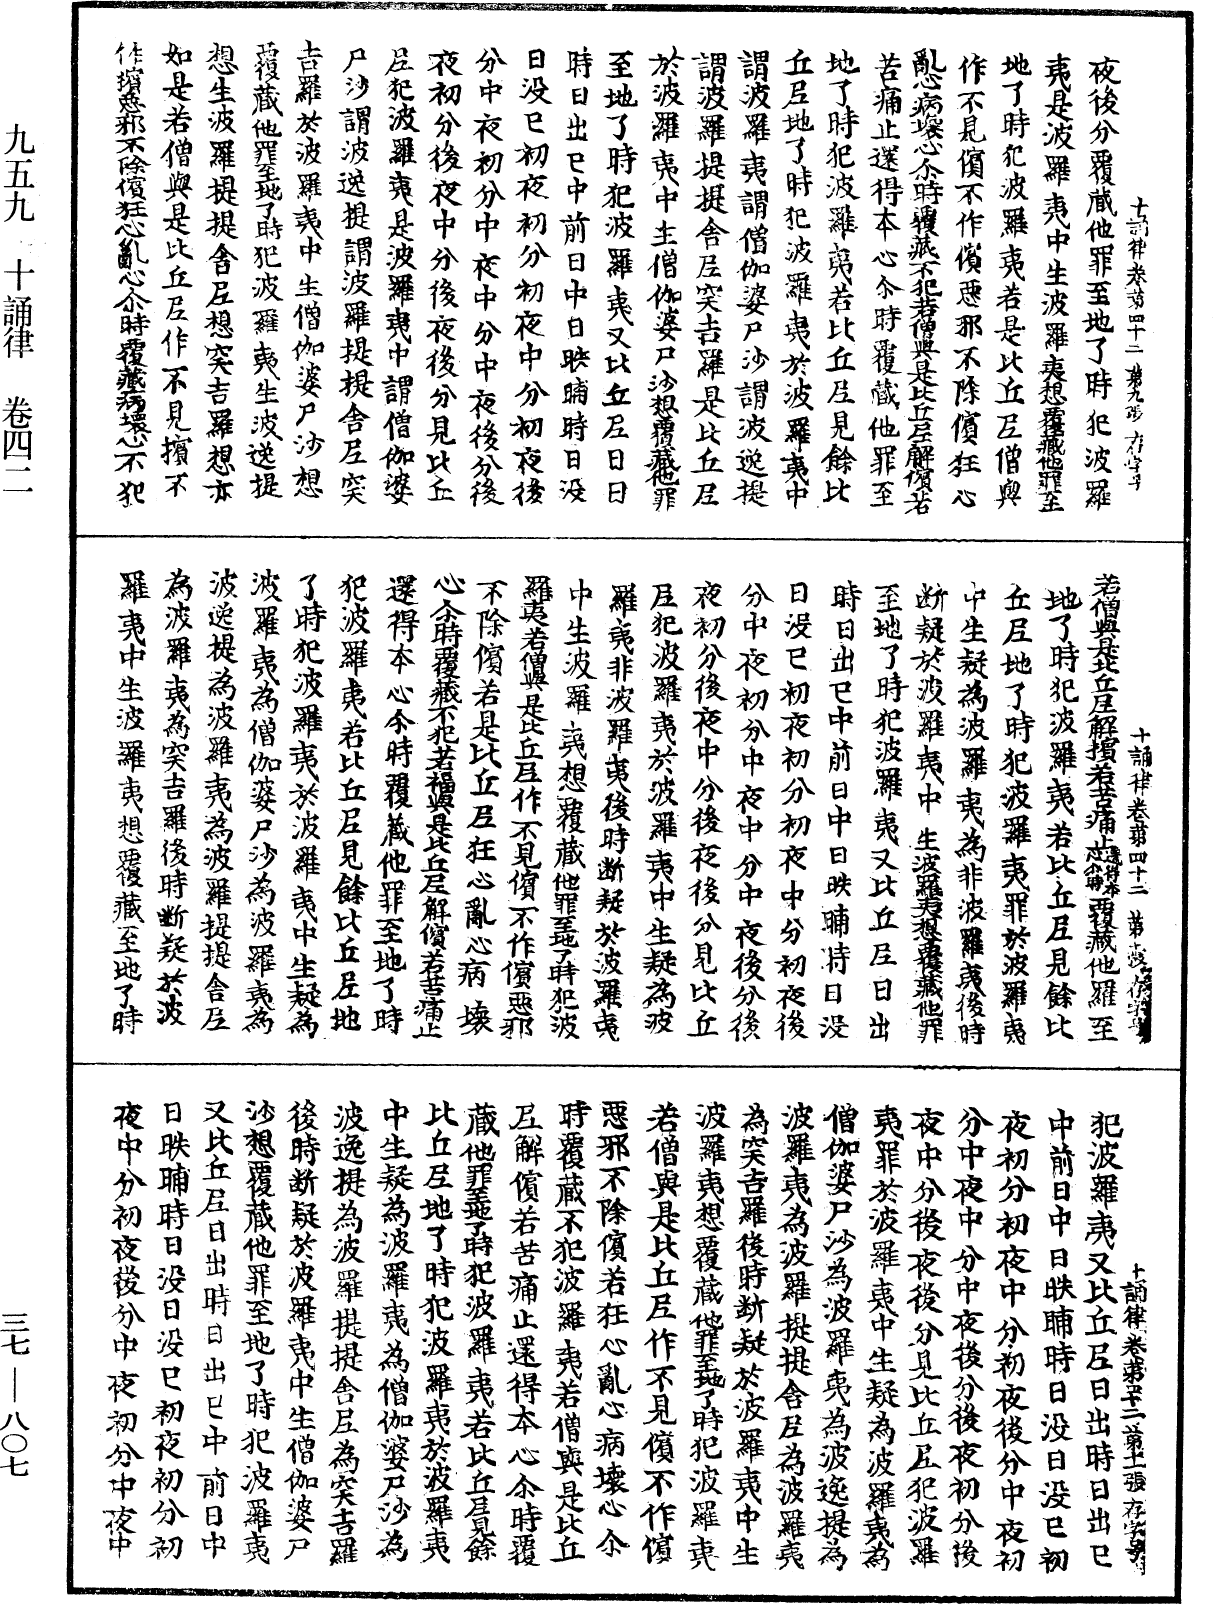 九五九 十誦律 卷四二
三七—八〇七
十誦律卷第四十二 第九張 存字号
夜後分覆藏他罪至地了時犯波羅
夷是波羅夷中生波羅夷想覆藏他罪至
地了時犯波羅夷若是比丘尼僧與
作不見儐不作儐惡邪不除儐狂心
亂心病壞心尒時覆藏不犯若僧與是比丘尼解儐若
苦痛止還得本心尒時覆藏他罪至
地了時犯波羅夷若比丘尼見餘比
丘尼地了時犯波羅夷於波羅夷中
謂波羅夷謂僧伽婆尸沙謂波逸提
謂波羅提提舍尼突吉羅是比丘尼
於波羅夷中生僧伽婆尸沙想覆藏他罪
至地了時犯波羅夷又比丘尼日日
時日出已中前日中日昳晡時日没
日没已初夜初分初夜中分初夜後
分中夜初分中夜中分中夜後分後
夜初分後夜中分後夜後分見比丘
尼犯波羅夷是波羅夷中謂僧伽婆
尸沙謂波逸提謂波羅提提舍尼突
吉羅於波羅夷中生僧伽婆尸沙想
覆藏他罪至地了時犯波羅夷生波逸提
想生波羅提提舍尼想突吉羅想亦
如是若僧與是比丘尼作不見擯不
作擯惡邪不除儐狂心亂心尒時覆藏病壞心不犯
若僧與是比丘尼解擯若苦痛止還得本心尒時覆藏他羅至
十誦律卷第四十二 第十張 存字号
地了時犯波羅夷若比丘尼見餘比
丘尼地了時犯波羅夷罪於波羅夷
中生疑為波羅夷為非波羅夷後時
断疑於波羅夷中生波羅夷想覆藏他罪
至地了時犯波羅夷又比丘尼日出
時日出已中前日中日昳晡時日没
日没已初夜初分初夜中分初夜後
分中夜初分中夜中分中夜後分後
夜初分後夜中分後夜後分見比丘
尼犯波羅夷於波羅夷中生疑為波
羅夷非波羅夷後時断疑於波羅夷
中生波羅夷想覆藏他罪至地了時犯波
羅夷若僧與是比丘尼作不見儐不作儐惡邪
不除儐若是比丘尼狂心亂心病壞
心尒時覆藏不犯若僧與是比丘尼解儐若苦痛止
還得本心尒時覆藏他罪至地了時
犯波羅夷若比丘尼見餘比丘尼地
了時犯波羅夷於波羅夷中生疑為
波羅夷為僧伽婆尸沙為波羅夷為
波逸提為波羅夷為波羅提提舍尼
為波羅夷為突吉羅後時断疑於波
羅夷中生波羅夷想覆藏至地了時
十誦律卷第四十二 第十一張 存字号
犯波羅夷又比丘尼日出時日出已
中前日中日昳晡時日没日没已初
夜初分初夜中分初夜後分中夜初
分中夜中分中夜後分後夜初分後
夜中分後夜後分見比丘尼犯波羅
夷罪於波羅夷中生疑為波羅夷為
僧伽婆尸沙為波羅夷為波逸提為
波羅夷為波羅提提舍尼為波羅夷
為突吉羅後時断疑於波羅夷中生
波羅夷想覆藏他罪至地了時犯波羅夷
若僧與是比丘尼作不見儐不作儐
惡邪不除儐若狂心亂心病壞心尒
時覆藏不犯波羅夷若僧與是比丘
尼解儐若苦痛止還得本心尒時覆
藏他罪至地了時犯波羅夷若比丘尼見餘
比丘尼地了時犯波羅夷於波羅夷
中生疑為波羅夷為僧伽婆尸沙為
波逸提為波羅提提舍尼為突吉羅
後時断疑於波羅夷中生僧伽婆尸
沙想覆藏他罪至地了時犯波羅夷
又比丘尼日出時日出已中前日中
日昳晡時日没日没已初夜初分初
夜中分初夜後分中夜初分中夜中